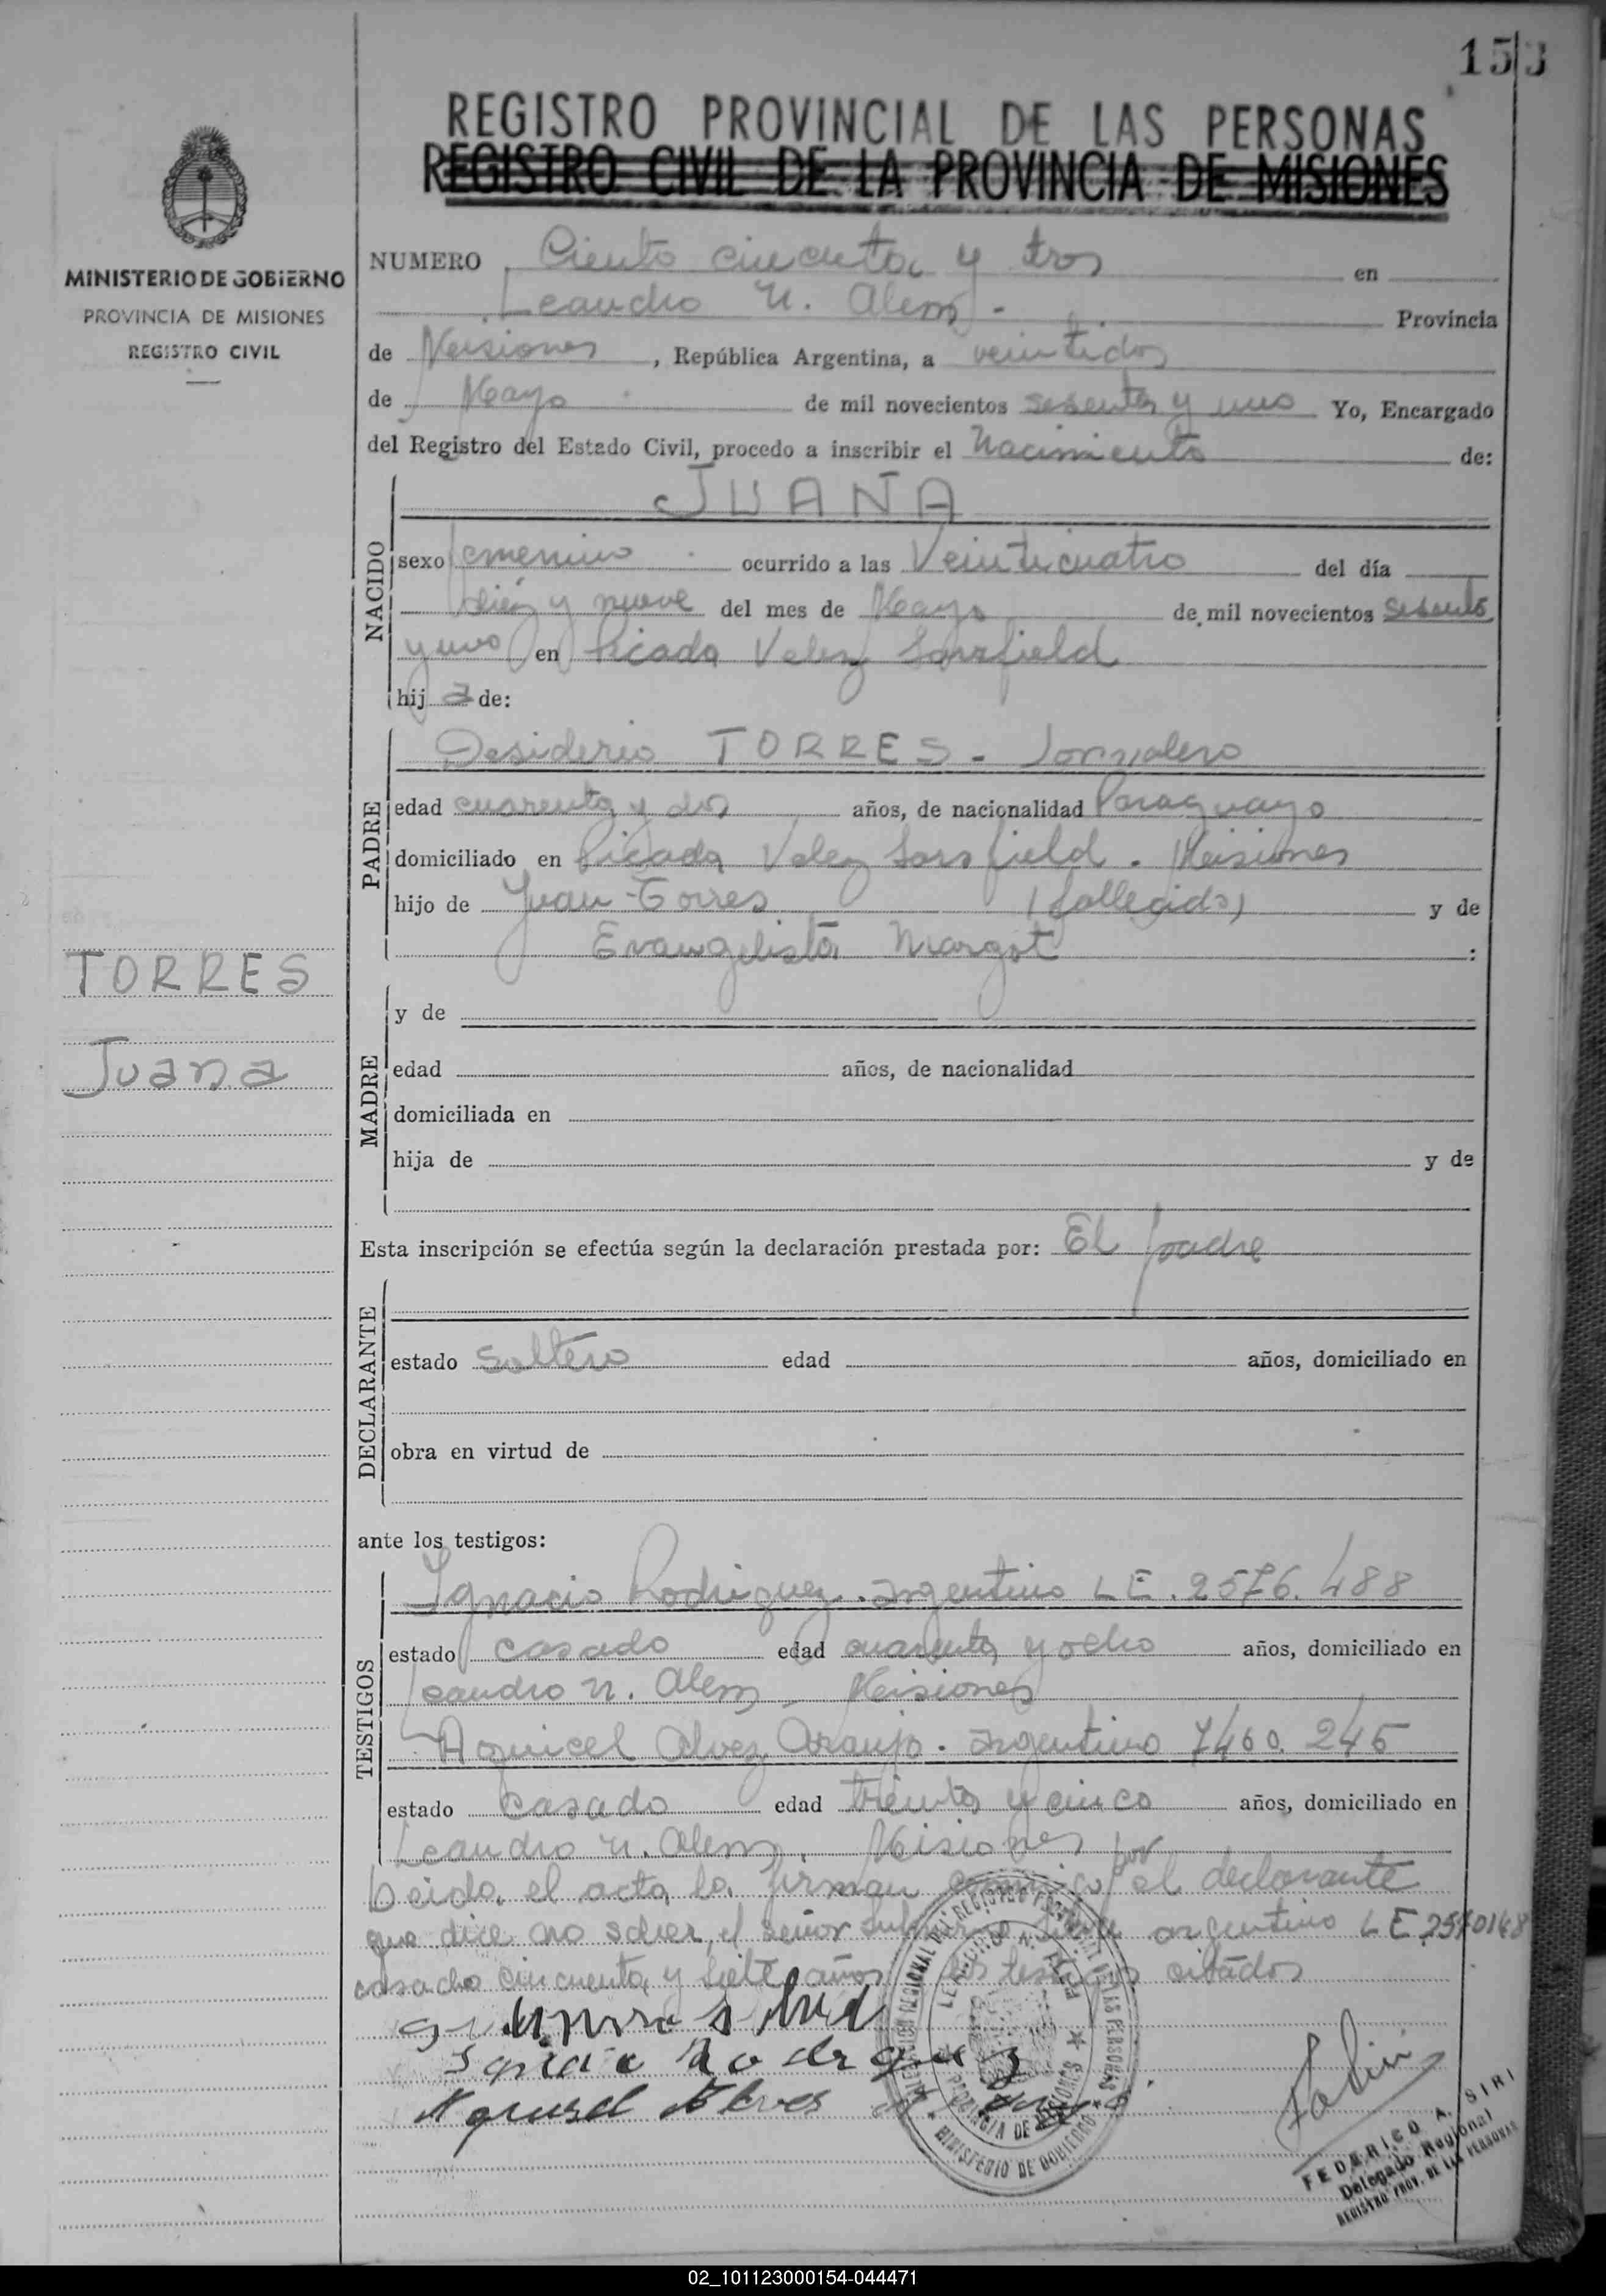 153
REGISTRO PROVINCIAL DE LAS PERSONAS
REGISTRO CIVIL DE LA PROVINCIA DE MISIONES
MINISTERIO DE GOBIERNO
PROVINCIA DE MISIONES
REGISTRO CIVIL
NUMERO Ciento cincuenta y tres en
Leandro N. Alem -
Provincia
de Misiones, República Argentina, a veintidos
de Mayo de mil novecientos sesenta y uno Yo, Encargado
del Registro del Estado Civil, procedo a inscribir el Nacimiento de:
NACIDO
JUANA
sexo femenino ocurrido a las Veinticuatro del día
diez y nueve del mes de Mayo de mil novecientos sesenta
y uno en Picada Velez Sarsfield
hij a de:
PADRE
Desiderio TORRES - Jornalero
edad cuarenta y dos años, de nacionalidad Paraguayo
domiciliado en Picada Velez Sarsfield . Misiones
hijo de Juan Torres (fallecido) y de
Evangelista Margot :
TORRES
Juana
MADRE
y de
edad años, de nacionalidad
domiciliada en
hija de y de
Esta inscripción se efectúa según la declaración prestada por: El padre
DECLARANTE
estado soltero edad años, domiciliado en
obra en virtud de
ante los testigos:
TESTIGOS
Ignacio Rodriguez . argentino L E . 2576. 488
estado casado edad cuarenta y ocho años, domiciliado en
Leandro N. Alem - Misiones
Alvez Araujo . argentino 7460. 245
estado casado edad treinta y cinco años, domiciliado en
Leandro N. Alem . Misiones
Leida el acta la firman conmigo por el declarante
que dice no saber, el señor argentino L E
casado cincuenta y siete años los testigos citados
DELEGACION REGIONAL DEL REGISTRO PROVINCIAL DE LAS PERSONAS
LEANDRO N. ALEM
PROVINCIA DE MISIONES
MINISTERIO DE GOBIERNO
FEDERICO A. SIRI
Delegado Regional
REGISTRO PROV. DE LAS PERSONAS
02_101123000154-044471